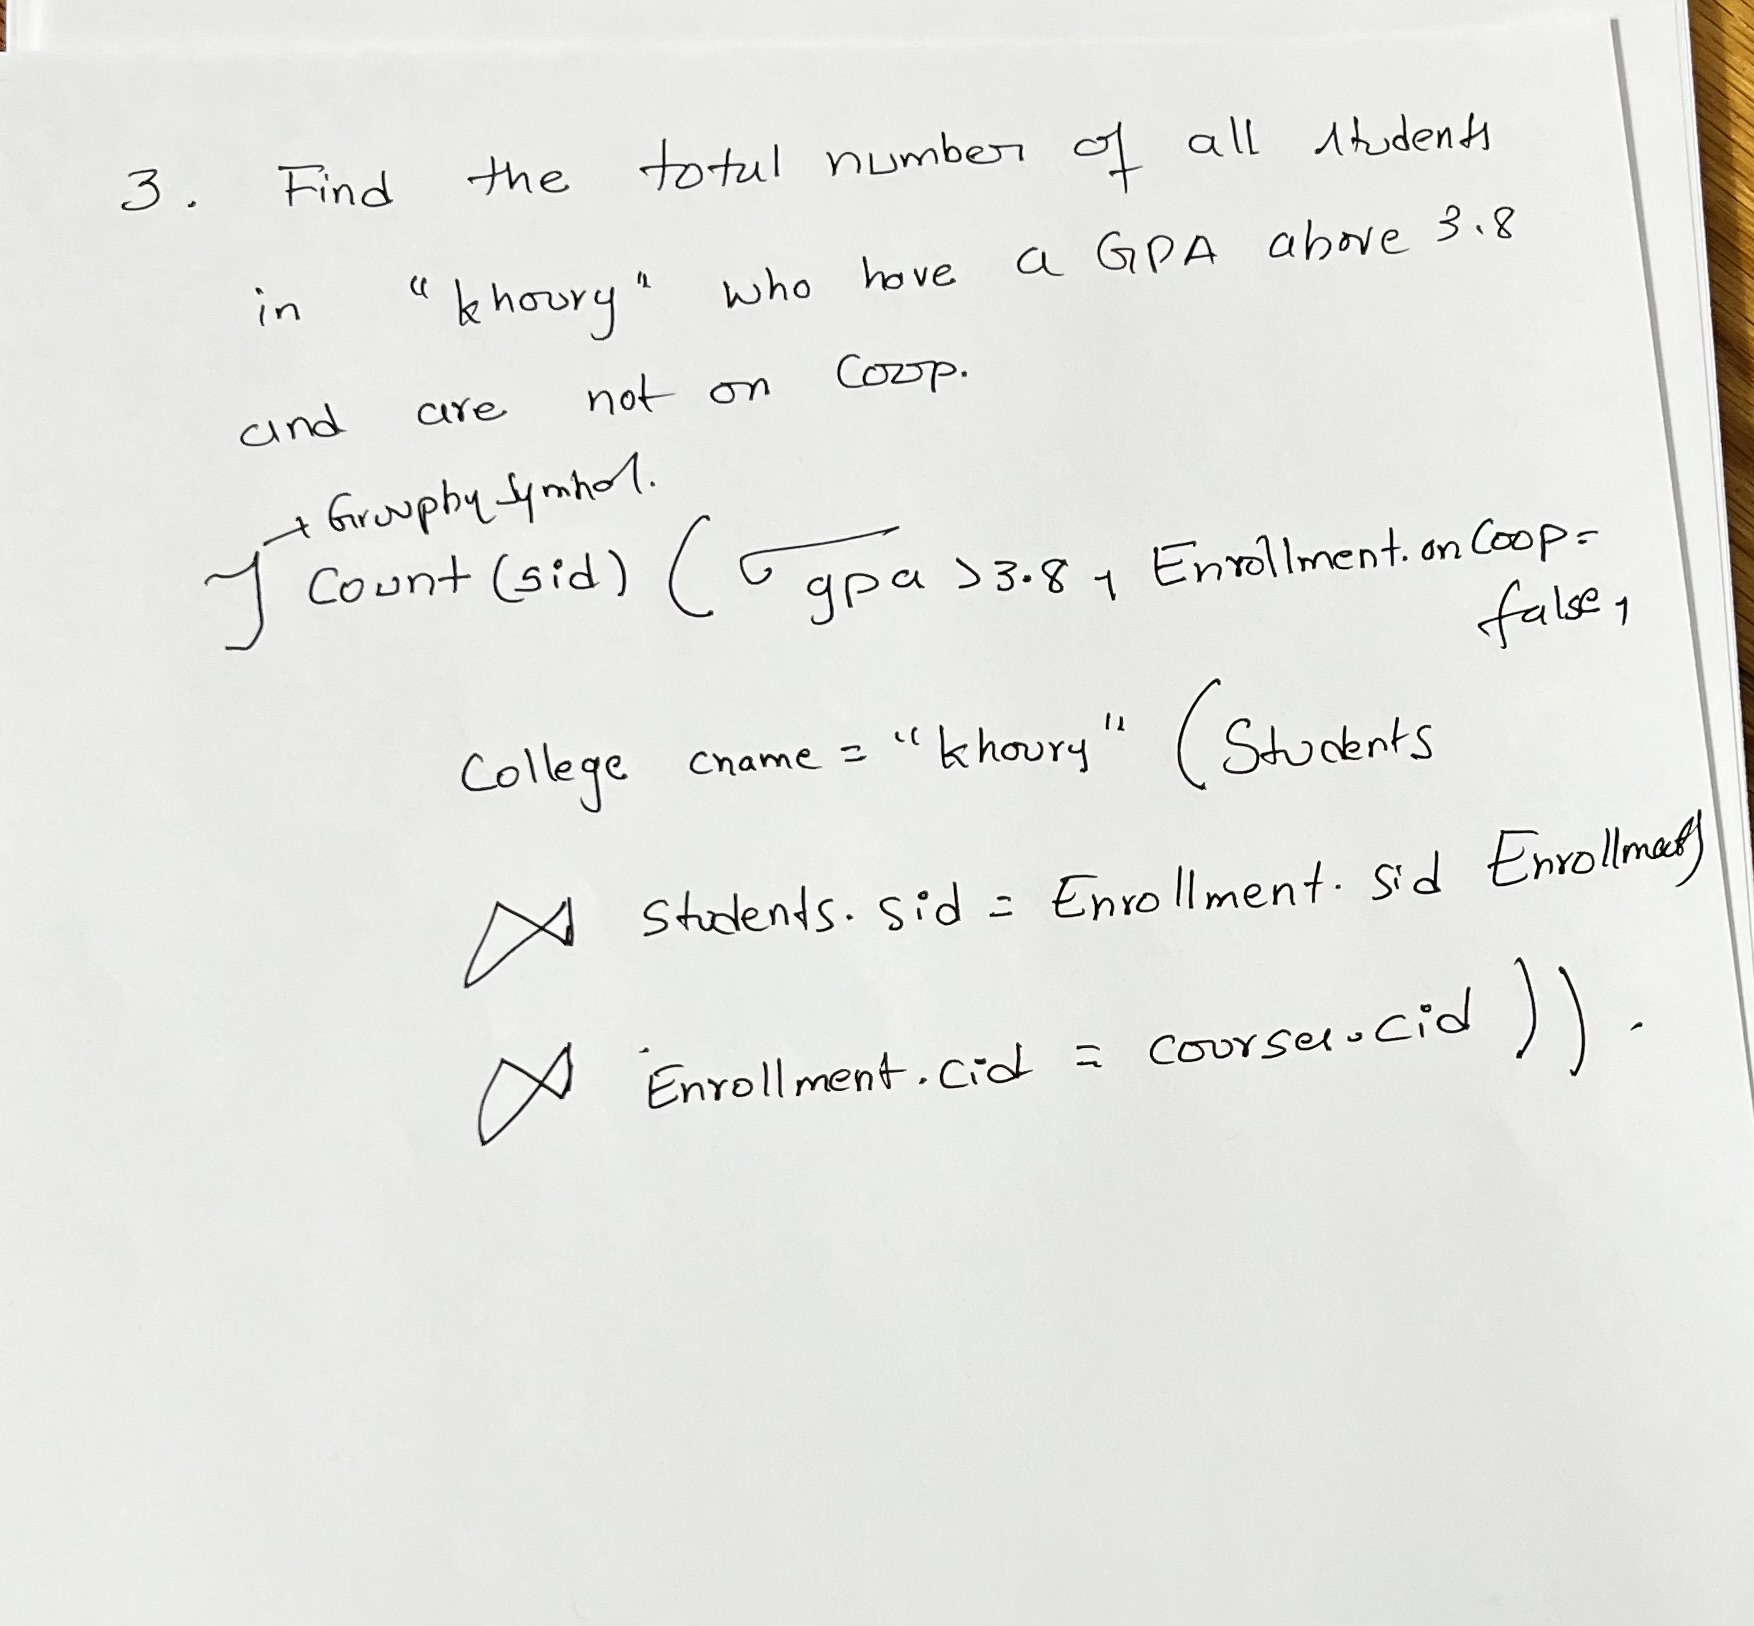 3. Find the total number of all students
in "khoury" who have a GPA above 3.8
and are not on Coop.
→ Groupby Symbol.
ℑ Count (sid) ( σ gpa > 3.8 , Enrollment.onCoop =
false,
College cname = "khoury" ( Students
⋈ Students.sid = Enrollment.sid Enrollment
⋈ Enrollment.cid = courses.cid )) .